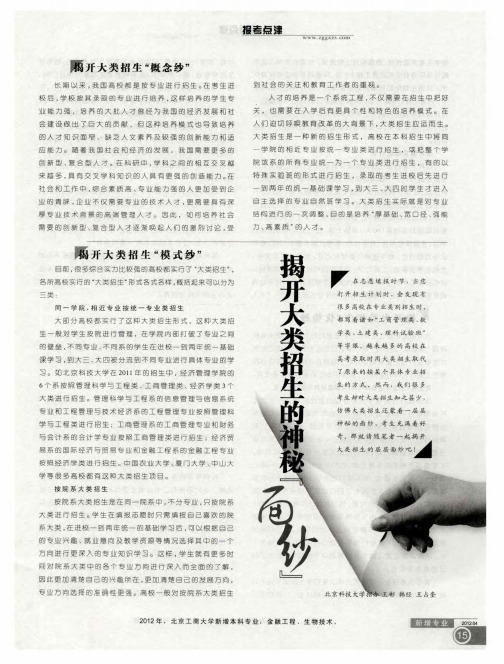 报考点津
www.zggzzs.com
揭开大类招生“概念纱”
长期以来，我国高校都是按专业进行招生。在考生进
校后，学校按其录取的专业进行培养，这样培养的学生专
业能力强，培养的大批人才曾经为我国的经济发展和社
会建设做出了巨大的贡献，但这种培养模式也导致培养
的人才知识面窄、缺乏人文素养及较强的创新能力和适
应能力。随着我国社会和经济的发展，我国需要更多的
创新型、复合型人才。在科研中，学科之间的相互交叉越
来越多，具有交叉学科知识的人具有更强的创造能力。在
社会和工作中，综合素质高、专业能力强的人更加受到企
业的青睐，企业不仅需要专业的技术人才，更需要具有深
厚专业技术背景的高端管理人才。因此，如何培养社会
需要的创新型、复合型人才逐渐唤起人们的激烈讨论，受
到社会的关注和教育工作者的重视。
人才的培养是一个系统工程，不仅需要在招生中把好
关，也需要在入学后有更具个性和特色的培养模式。在
人们迫切盼顾教育改革的大背景下，大类招生应运而生。
大类招生是一种新的招生形式，高校在本科招生中将同
一学院的相近专业按统一专业类进行招生，或把整个学
院或系的所有专业统一为一个专业类进行招生，有的以
特殊实验班的形式进行招生，录取的考生进校后先进行
一到两年的统一基础课学习，到大三、大四时学生才进入
自主选择的专业自然班学习。大类招生实际就是对专业
结构进行的一次调整，目的是培养“厚基础、宽口径、强能
力、高素质”的人才。
揭开大类招生“模式纱”
目前，很多综合实力比较强的高校都实行了“大类招生”，
各所高校实行的“大类招生”形式各式各样，概括起来可以分为
三类：
同一学院，相近专业按统一专业类招生
大部分高校都实行了这种大类招生形式，这种大类招
生一般对学生按照进行管理，在学院内部打破了专业之间
的壁垒，不同专业、不同系的学生在进校一到两年统一基础
课学习，到大三、大四被分流到不同专业进行具体专业的学
习。如北京科技大学在2011年的招生中，经济管理学院的
6个系按照管理科学与工程类、工商管理类、经济学类3个
大类进行招生。管理科学与工程系的信息管理与信息系统
专业和工程管理与技术经济系的工程管理专业按照管理科
学与工程类进行招生；工商管理系的工商管理专业和财务
与会计系的会计学专业按照工商管理类进行招生；经济贸
易系的国际经济与贸易专业和金融工程系的金融工程专业
按照经济学类进行招生。中国农业大学、厦门大学、中山大
学等很多高校都有这种大类招生项目。
按院系大类招生
按院系大类招生是在同一院系中，不分专业，只按院系
大类进行招生。学生在填报志愿时只需填报自己喜欢的院
系大类，在进校一到两年统一的基础学习后，可以根据自己
的专业兴趣、就业意向及教学资源等情况选择其中的一个
方向进行更深入的专业知识学习。这样，学生就有更多时
间对院系大类中的各个专业方向进行深入而全面的了解，
因此更加清楚自己的兴趣所在，更加清楚自己的发展方向，
专业方向选择的准确性更强。高校一般对按院系大类招生
揭开大类招生的神秘『面纱』
在志愿填报时节，当您
打开招生计划时，会发现有
很多高校在专业类别招生时，
都写着诸如“工商管理类、数
学类、土建类、理科试验班”
等字眼。越来越多的高校在
高考录取时用大类招生取代
了原来的按某个具体专业招
生的方式。然而，我们很多
考生却对大类招生知之甚少，
仿佛大类招生还蒙着一层层
神秘的面纱。考生充满着好
奇，那就请随笔者一起揭开
大类招生的层层面纱吧！
北京科技大学招办 王彬 韩经 王占奎
2012年，北京工商大学新增本科专业：金融工程、生物技术。
新增专业
2012.04
15